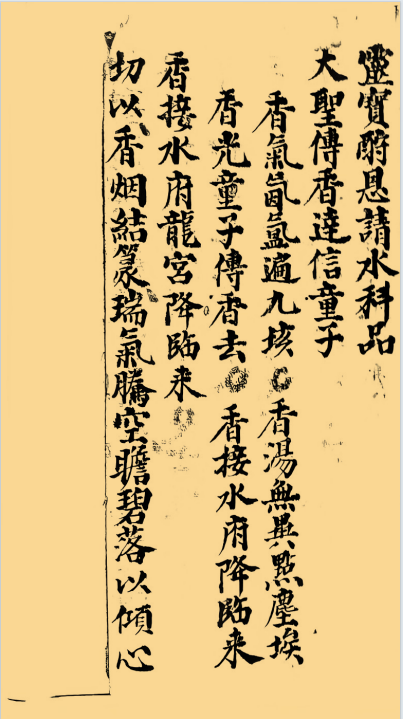 靈寶酧恩請水科品
大聖傳香達信童子
香氣氤氳遍九垓○香湯無異點塵埃
香光童子傳香去○香接水府降臨来
香接水府龍宮降臨来
切以香烟結篆瑞氣騰空瞻碧落以傾心